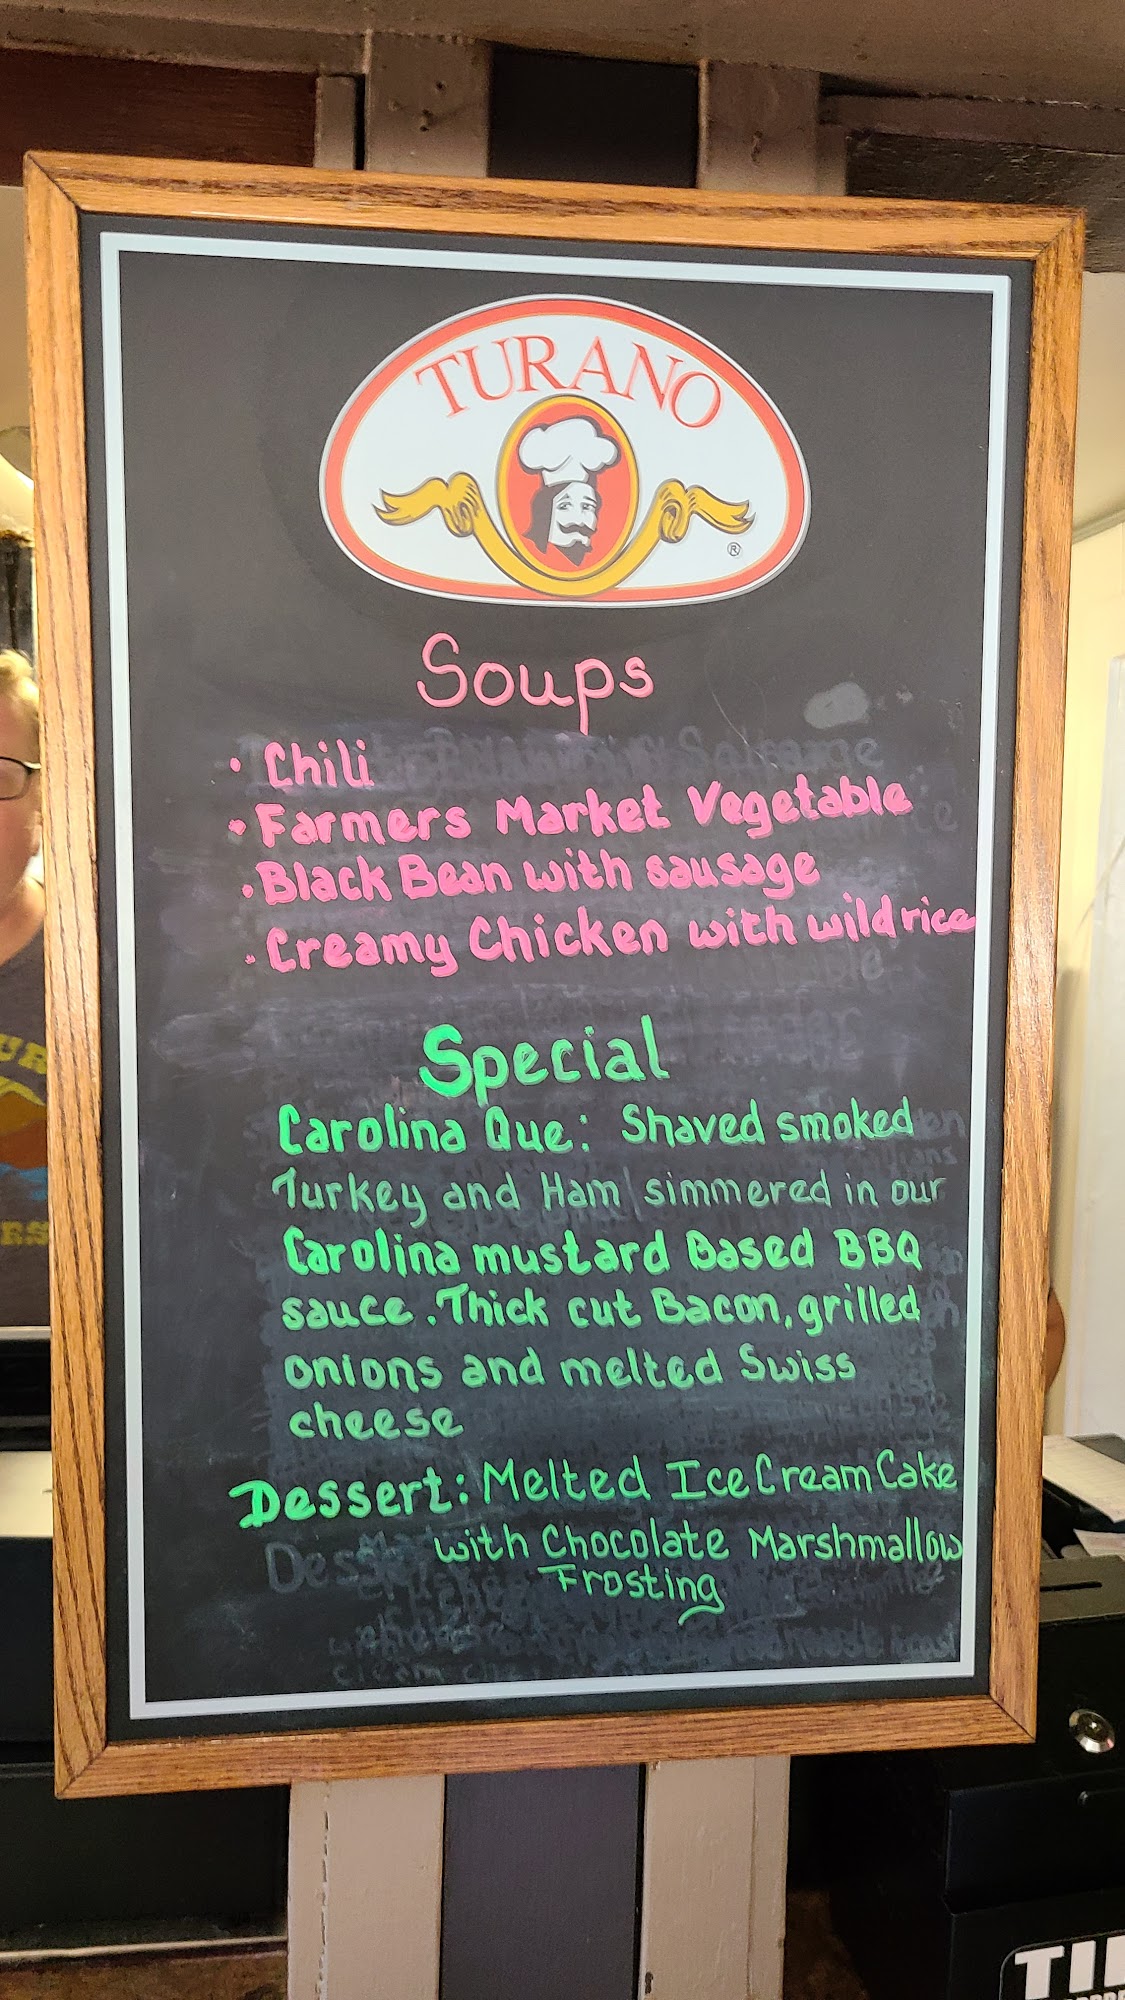 TURANO
®
Soups
· Chili
· Farmers Market Vegetable
· Black Bean with sausage
· Creamy Chicken with wild rice
Special
Carolina Que: Shaved smoked
Turkey and Ham simmered in our
Carolina mustard Based BBQ
sauce. Thick cut Bacon, grilled
onions and melted Swiss
cheese
Dessert: Melted Ice Cream Cake
with Chocolate Marshmallow
Frosting